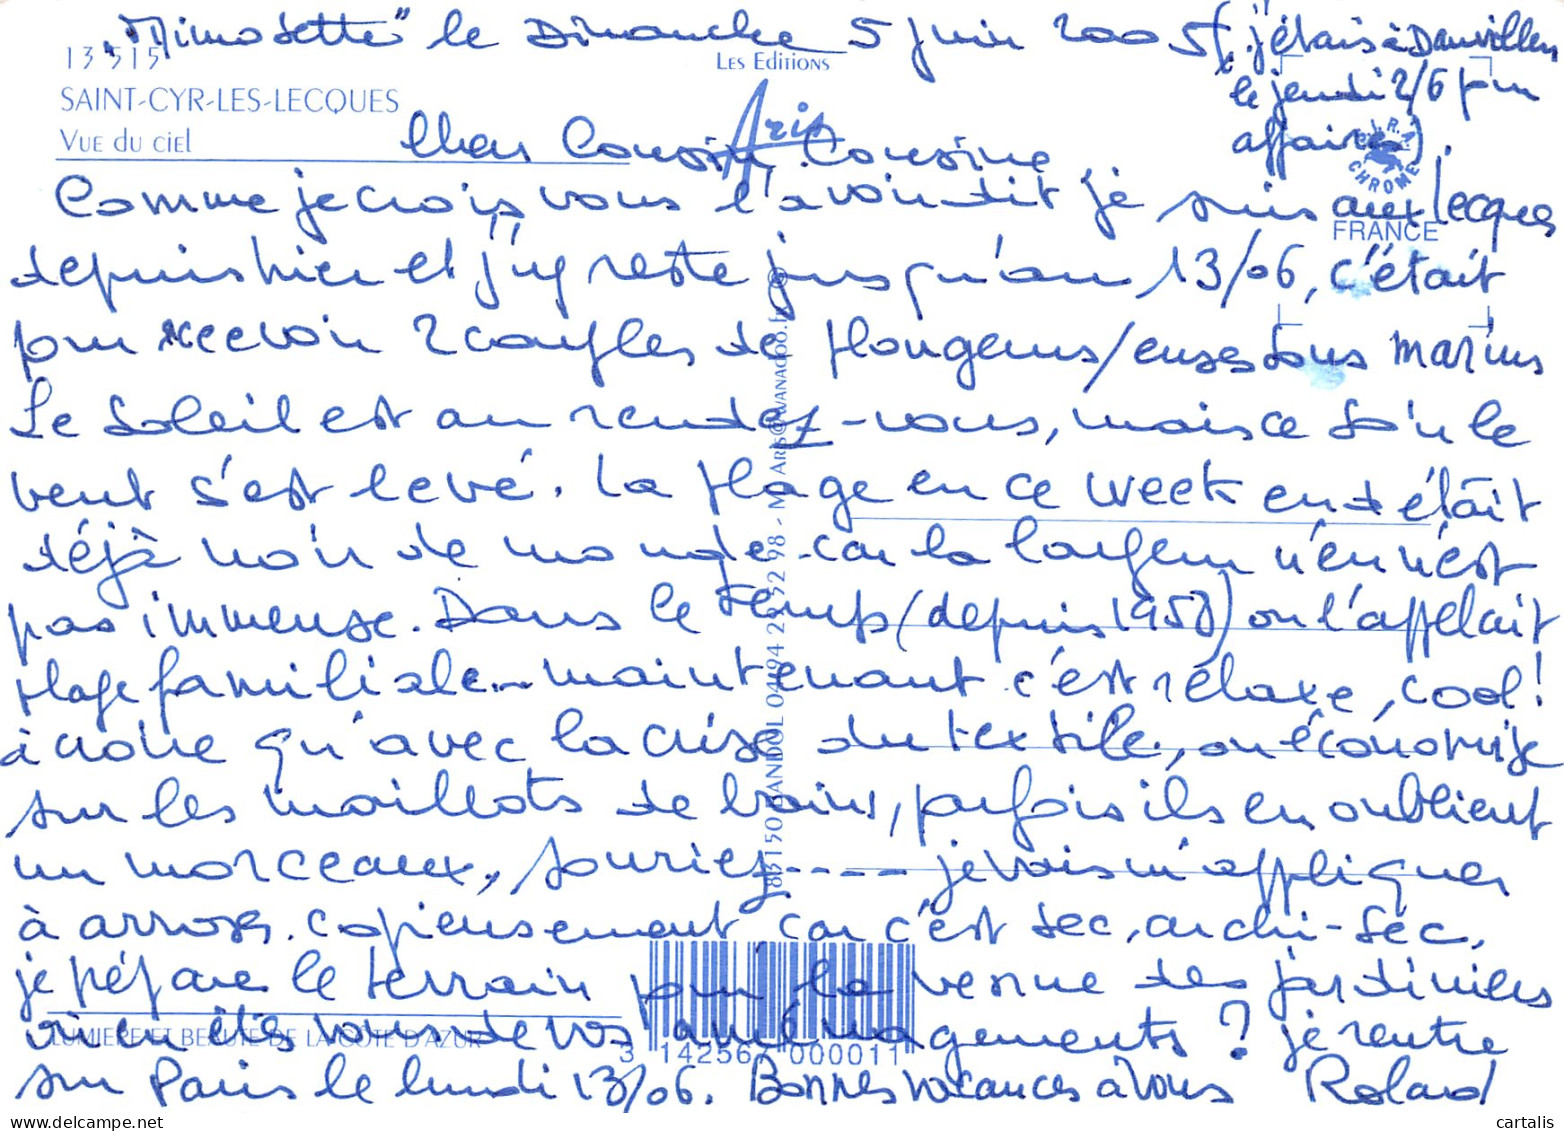 "Mimosette" le Dimanche 5 Juin 2005 (j'étais à Danvillers
le jeudi 2/6 pour
affaires).
13515
SAINT-CYR-LES-LECQUES
VUE DU CIEL
LES EDITIONS
Aris
CHROME
FRANCE
Cher Cousin, Cousine
Comme je crois vous l'avoir dit je suis aux Lecques
depuis hier et j'y reste jusqu'au 13/06, c'était
pour recevoir 2 couples de plongeurs/euses sous marins
Le Soleil est au rendez-vous, mais ce soir le
vent s'est levé. La plage en ce week end était
déjà noir de monde car la largeur n'en n'est
pas immense. Dans le temps (depuis 1958) on l'appelait
plage familiale... maintenant c'est rélaxe, cool!
à croire qu'avec la crise du textile, on économise
sur les maillots de bains, parfois ils en oublient
un morceaux, souriez ---- je vais m'appliquer
à arroser copieusement car c'est sec, archi-sec,
je prépare le terrain pour la venue des jardiniers
où en êtes vous de vos aménagements ? je rentre
sur Paris le lundi 13/06. Bonnes vacances à vous Roland
LUMIERE ET BEAUTE DE LA COTE D'AZUR
3 142567 000011
83150 BANDOL 04 94 29 52 98 - M.ARIS@WANADOO.fr
cartalis
www.delcampe.net